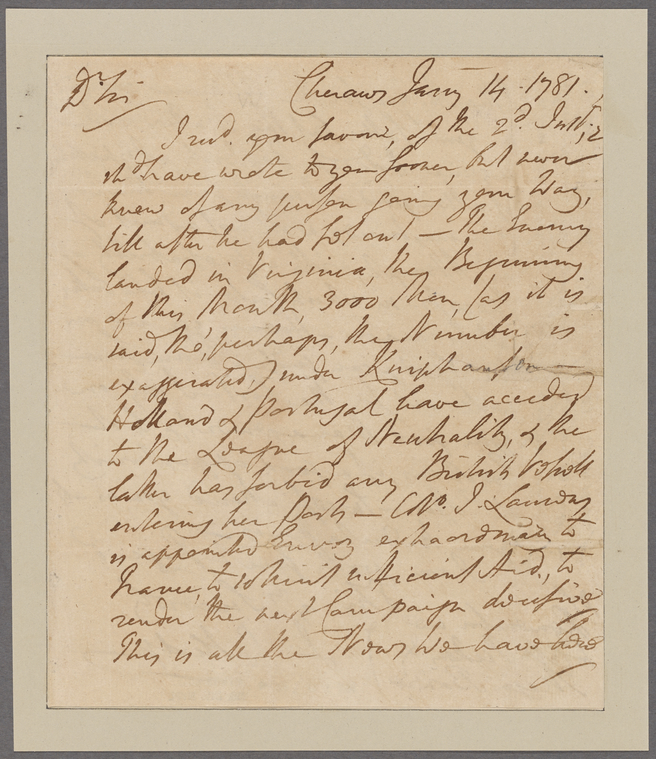 Dr. Sir Cheraws Jany 14 1781.
I recd. your favour, of the 2d. Inst., &
shd have wrote to you sooner, but never
knew of any person going your Way,
till after he had set out — The Enemy
landed in Virginia, the Beginning
of this Month, 3000 Men, (as it is
said, tho', perhaps, the Number is
exaggerated,) under Kniphausen —
Holland & Portugal have acceded
to the League of Neutrality, & the
latter has forbid any British Vessels
entering her Ports — Colo. J. Laurens
is appointed Envoy extraordinary to
France, to solicit sufficient Aid, to
render the next Campaign decisive
This is all the News we have here